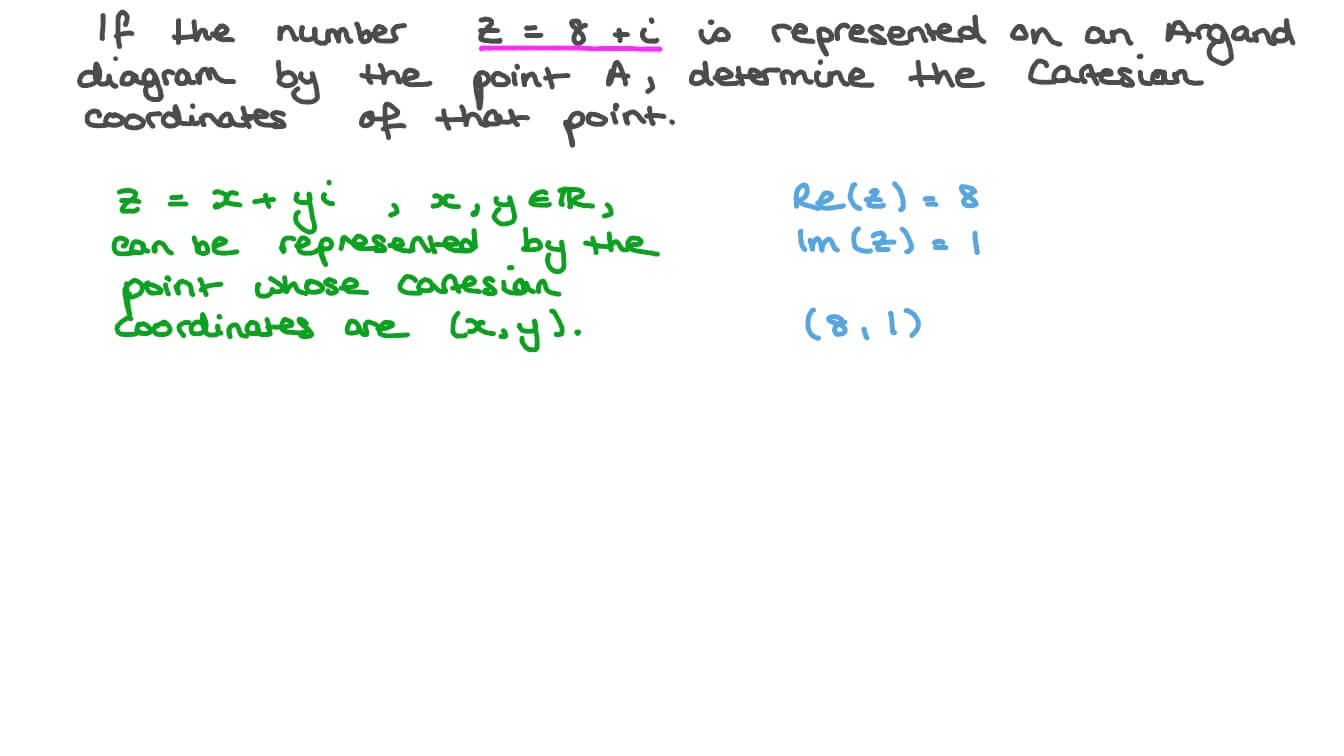 If the number z = 8 + i is represented on an Argand
diagram by the point A, determine the Cartesian
coordinates of that point.
z = x + yi , x, y ∈ ℝ,
can be represented by the
point whose Cartesian
coordinates are (x, y).
Re(z) = 8
Im(z) = 1
(8, 1)